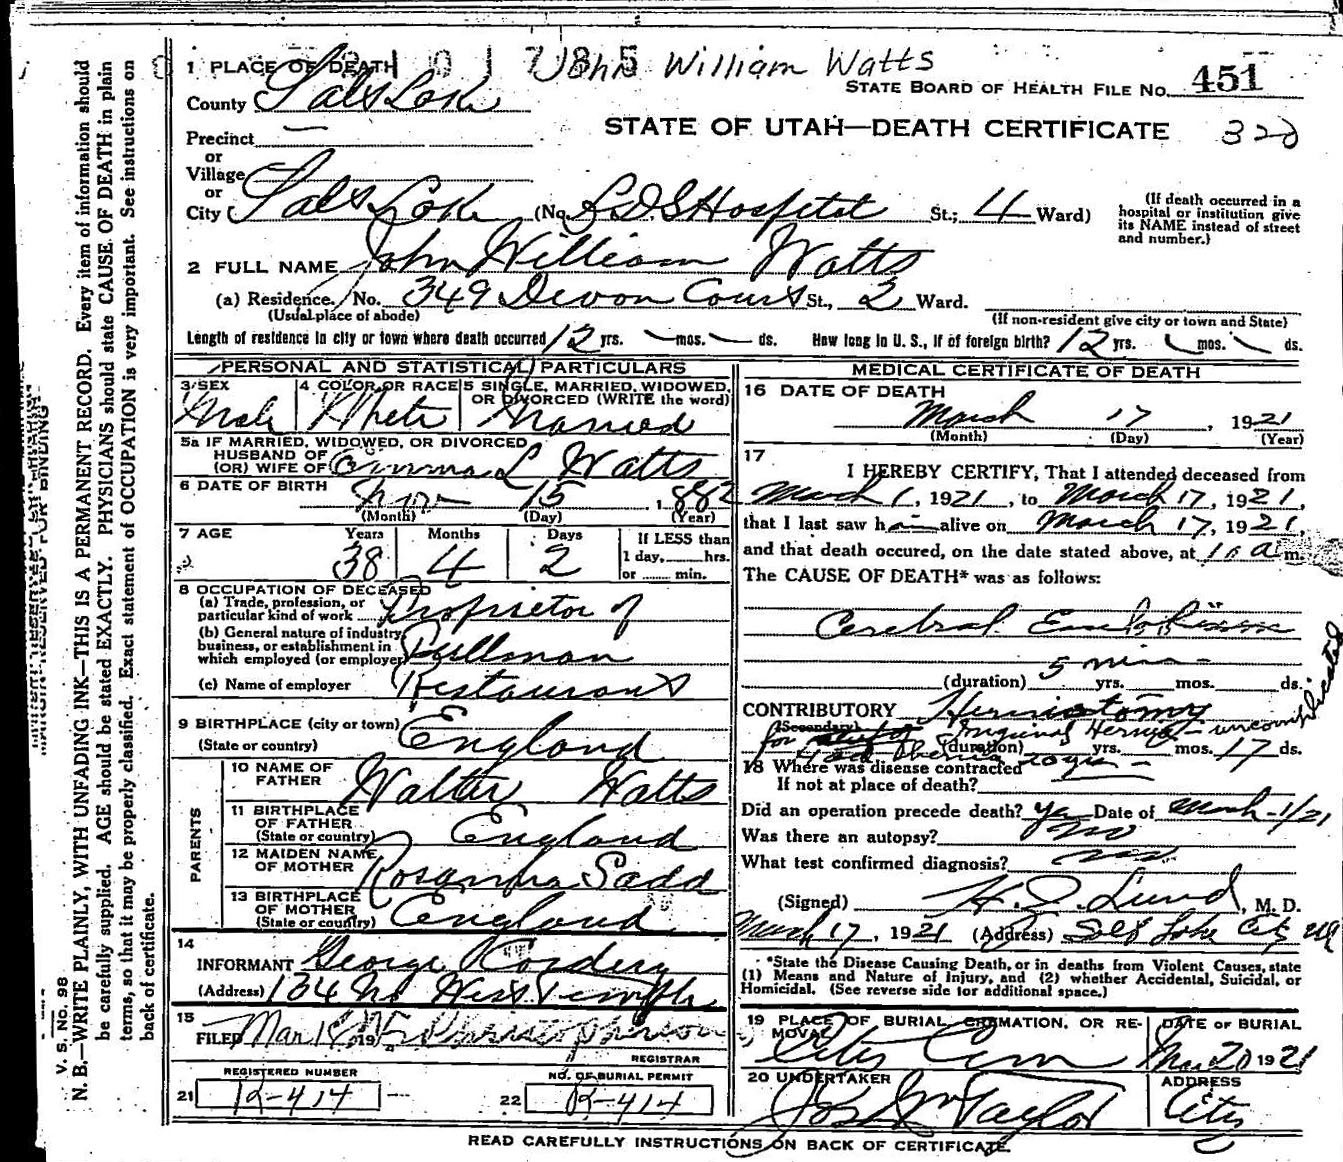 1 PLACE OF DEATH
John William Watts
County Salt Lake
STATE BOARD OF HEALTH FILE NO. 451
Precinct —
STATE OF UTAH—DEATH CERTIFICATE
322
or
Village
or
City (Salt Lake (No. L.D.S Hospital St.; 4 Ward)
(If death occurred in a hospital or institution give its NAME instead of street and number.)
2 FULL NAME John William Watts
(a) Residence. No. 349 Devon Court St., 2 Ward.
(Usual place of abode)
(If non-resident give city or town and State)
Length of residence in city or town where death occurred 12 yrs. — mos. — ds. How long in U. S., if of foreign birth? 12 yrs. — mos. — ds.
PERSONAL AND STATISTICAL PARTICULARS
3 SEX
Male
4 COLOR OR RACE
White
5 SINGLE, MARRIED, WIDOWED, OR DIVORCED (WRITE the word)
Married
5a IF MARRIED, WIDOWED, OR DIVORCED
HUSBAND OF
(OR) WIFE OF Emma L Watts
6 DATE OF BIRTH
15, 1882
(Month) (Day) (Year)
7 AGE Years Months Days
38 4 2
If LESS than
1 day, hrs.
or min.
8 OCCUPATION OF DECEASED
(a) Trade, profession, or
particular kind of work Proprietor of
(b) General nature of industry,
business, or establishment in
which employed (or employer) Pullman
(c) Name of employer Restaurant
9 BIRTHPLACE (city or town)
(State or country) England
PARENTS
10 NAME OF
FATHER Walter Watts
11 BIRTHPLACE
OF FATHER
(State or country) England
12 MAIDEN NAME
OF MOTHER Rosanna Sadd
13 BIRTHPLACE
OF MOTHER
(State or country) England
14
INFORMANT George Kordery
(Address) 134 No West Temple
15
FILED Mar 18, 19
REGISTRAR
REGISTERED NUMBER
21 K-414
NO. OF BURIAL PERMIT
22 K-414
MEDICAL CERTIFICATE OF DEATH
16 DATE OF DEATH
March 17, 1921
(Month) (Day) (Year)
17
I HEREBY CERTIFY, That I attended deceased from
March 1, 1921, to March 17, 1921,
that I last saw him alive on March 17, 1921,
and that death occured, on the date stated above, at 10 a m.
The CAUSE OF DEATH* was as follows:
Cerebral Embolism
5 min
(duration) yrs. mos. ds.
CONTRIBUTORY Herniotomy
(Secondary)
for Inguinal Hernia - uncomplicated
(duration) yrs. mos. 17 ds.
Had Hernia 20 yrs —
18 Where was disease contracted
If not at place of death?
Did an operation precede death? yes Date of March 1/21
Was there an autopsy? No
What test confirmed diagnosis?
(Signed) H. D. Lund, M. D.
March 17, 1921 (Address) Salt Lake City Ut
*State the Disease Causing Death, or in deaths from Violent Causes, state
(1) Means and Nature of Injury, and (2) whether Accidental, Suicidal, or
Homicidal. (See reverse side for additional space.)
19 PLACE OF BURIAL, CREMATION, OR REMOVAL
City Cem
DATE OF BURIAL
Mar 20 1921
20 UNDERTAKER
Jos. Wm Taylor
ADDRESS
City
READ CAREFULLY INSTRUCTIONS ON BACK OF CERTIFICATE.
V. S. No. 98
N. B.—WRITE PLAINLY, WITH UNFADING INK—THIS IS A PERMANENT RECORD. Every item of information should
be carefully supplied. AGE should be stated EXACTLY. PHYSICIANS should state CAUSE OF DEATH in plain
terms, so that it may be properly classified. Exact statement of OCCUPATION is very important. See instructions on
back of certificate.